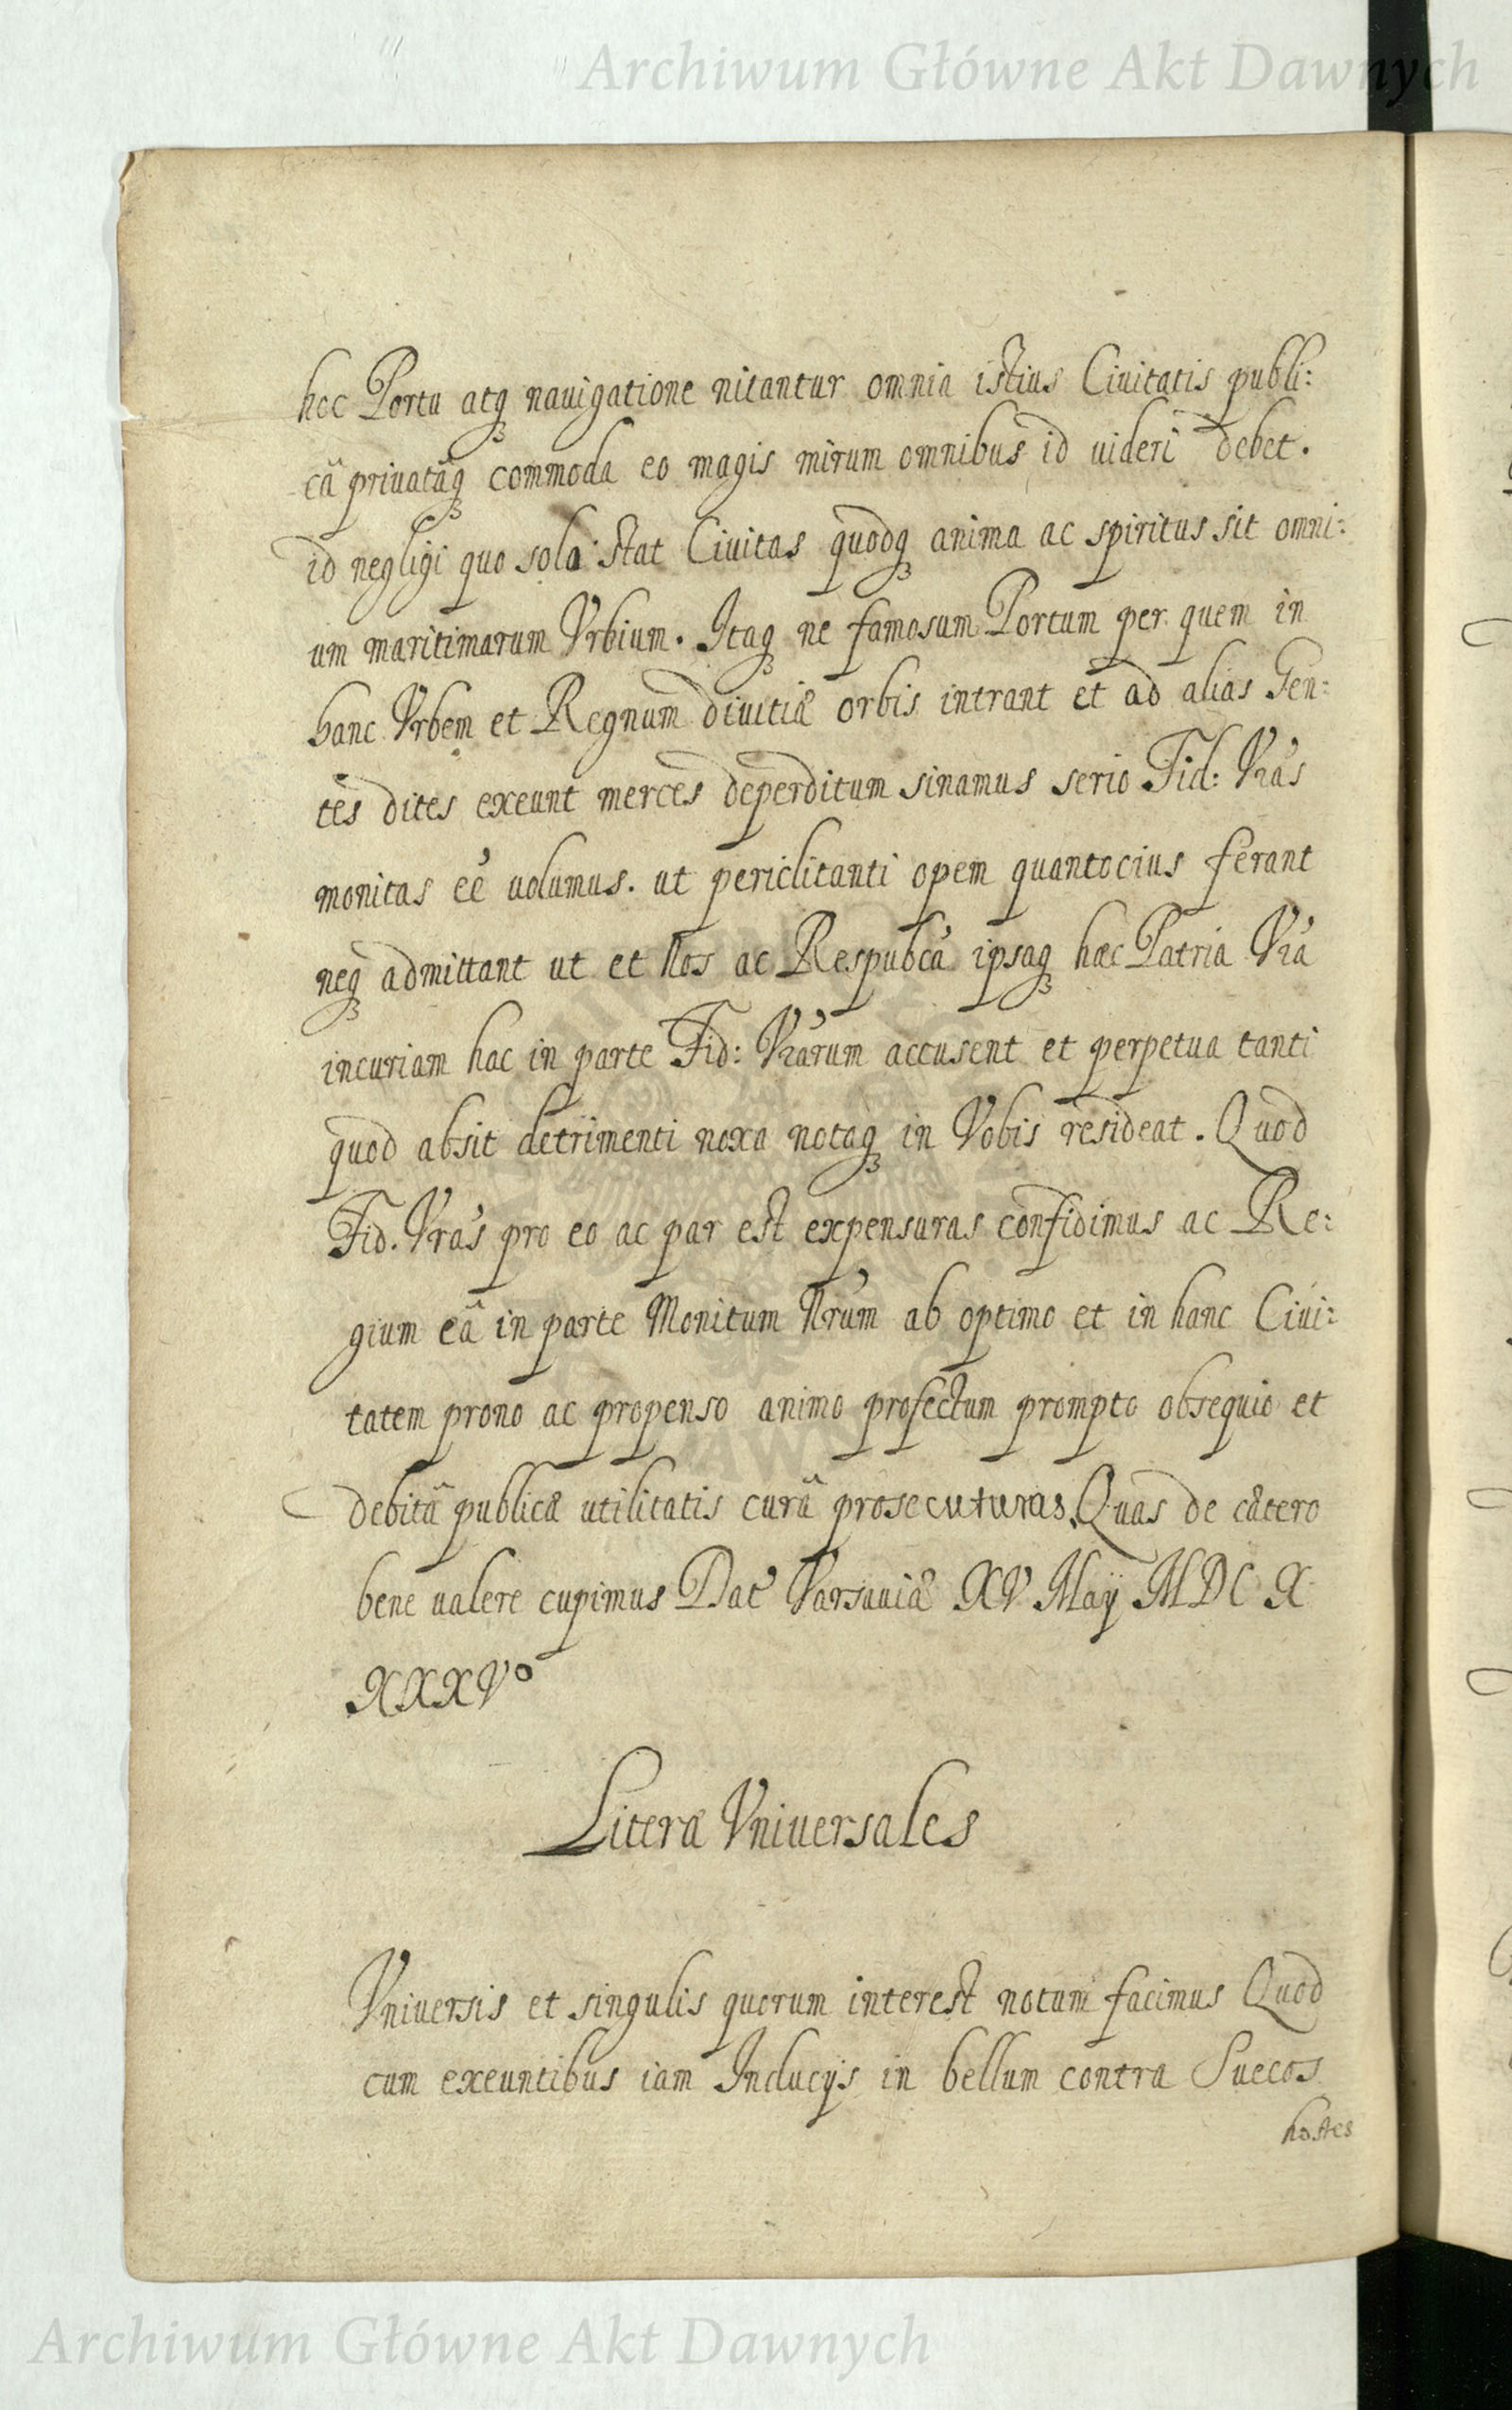 Archiwum Główne Akt Dawnych
hoc Portu atq nauigatione nitantur omnia istius Ciuitatis publi:
câ priuatâq commoda eo magis mirum omnibus id uideri debet.
id negligi quo sola stat Ciuitas quodq anima ac spiritus sit omni:
um maritimarum Vrbium. Itaq ne famosum Portum per quem in
hanc Vrbem et Regnum diuitiæ orbis intrant et ad alias Gen:
tes dites exeunt merces deperditum sinamus serio Fid: Vras
monitas eē uolumus. ut periclitanti opem quantocius ferant
neq admittant ut et Nos ac Respubca ipsaq hæc Patria Vra
incuriam hac in parte Fid: Vrarum accusent et perpetua tanti
quod absit detrimenti noxa notaq in Vobis resideat. Quod
Fid. Vras pro eo ac par est expensuras confidimus ac Re:
gium eâ in parte Monitum Nrum ab optimo et in hanc Ciui:
tatem prono ac propenso animo profectum prompto obsequio et
debitâ publicæ utilitatis curâ prosecuturas. Quas de cætero
bene ualere cupimus Dat Varsauiæ XV Maÿ MDC X
XXXVo
Literæ Vniuersales
Vniuersis et singulis quorum interest notum facimus Quod
cum exeuntibus iam Inducÿs in bellum contra Suecos
hostes
Archiwum Główne Akt Dawnych